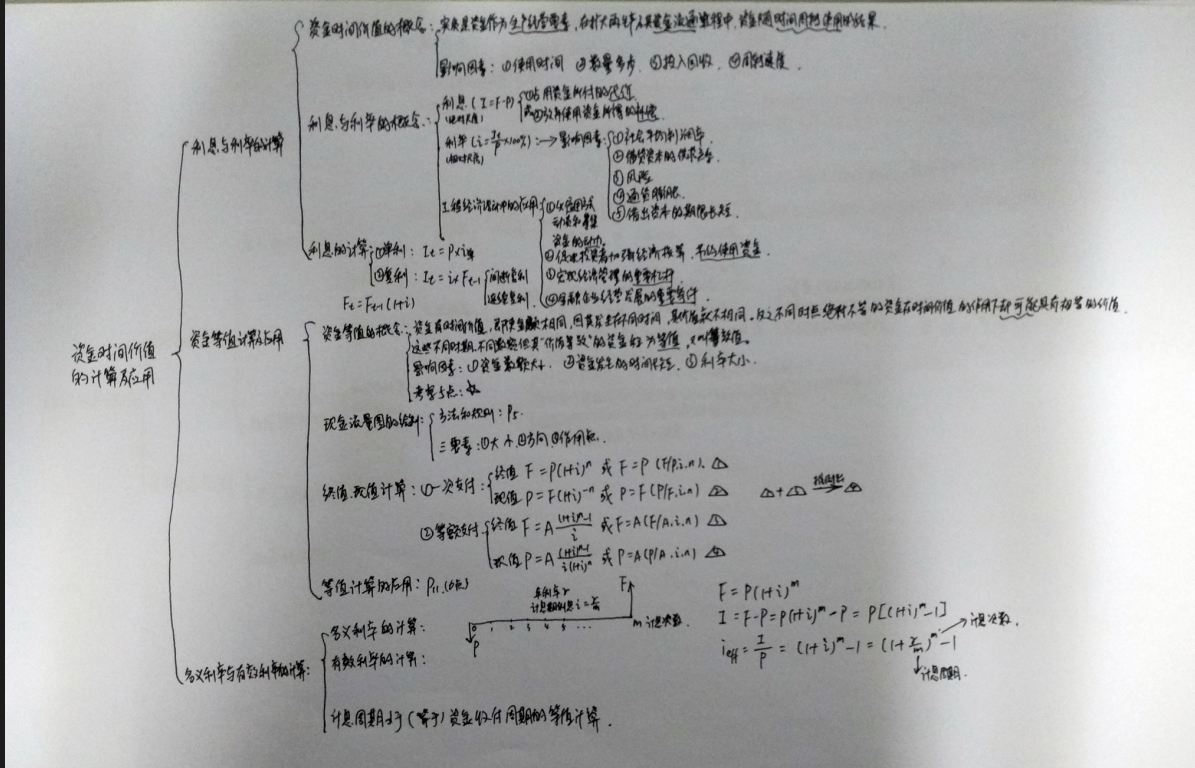 资金时间价值的概念：实质是资金作为生产经营要素，在扩大再生产及其资金流通过程中，资金随时间周转使用的结果.
影响因素：①使用时间 ②数量多少 ③投入回收 ④周转速度.
利息与利率的计算
利息与利率的概念：
利息（I=F-P）
(绝对尺度)
①占用资金所付的代价
或②放弃使用资金所得的补偿
利率（
×100%）：→影响因素：
(相对尺度)
①社会平均利润率
②借贷资本的供求
③风险
④通货膨胀
⑤借出资本的期限长短.
工程经济活动中的应用
①以信用方式
动员和集聚
资金的动力.
②促进投资者加强经济核算，节约使用资金.
③宏观经济管理的重要杠杆
④金融企业经营发展的重要条件
利息的计算
①单利：It=P×i单
②复利：It=i×Ft-1
间断复利
连续复利
Ft=Ft-1(1+i)
资金时间价值
的计算及应用
资金等值计算及应用
资金等值的概念：资金有时间价值，即使金额相同，因其发生在不同时间，其价值就不相同。反之不同时点绝对不等的资金在时间价值的作用下却可能具有相等的价值.
这些不同时期、不同数额但其“价值等效”的资金称为等值，又叫等效值。
影响因素：①资金数额大小 ②资金发生的时间长短 ③利率大小.
现金流量图的绘制：
方法和规则：P5.
三要素：①大小②方向③作用点.
终值、现值计算：①一次支付：
终值 F=P(1+i)^n 或 F=P (F/P,i,n). △1
现值 P=F(1+i)^-n 或 P=F (P/F,i,n) △2
②等额支付
终值 F=A ((1+i)^n-1)/i 或 F=A(F/A,i,n) △3
现值 P=A ((1+i)^n-1)/(i(1+i)^n) 或 P=A(P/A,i,n) △4
等值计算的应用：P11.
年利率r
计息期利息i=r/m
F
P
0 1 2 3 4 5 ... m 计息次数.
F=P(1+i)^m
I=F-P=P(1+i)^m-P=P[(1+i)^m-1]
ieff=I/P=(1+i)^m-1=(1+r/m)^m-1
计息次数.
计息周期.
名义利率与有效利率的计算：
名义利率的计算：
有效利率的计算：
计息周期小于（等于）资金收付周期的等值计算.